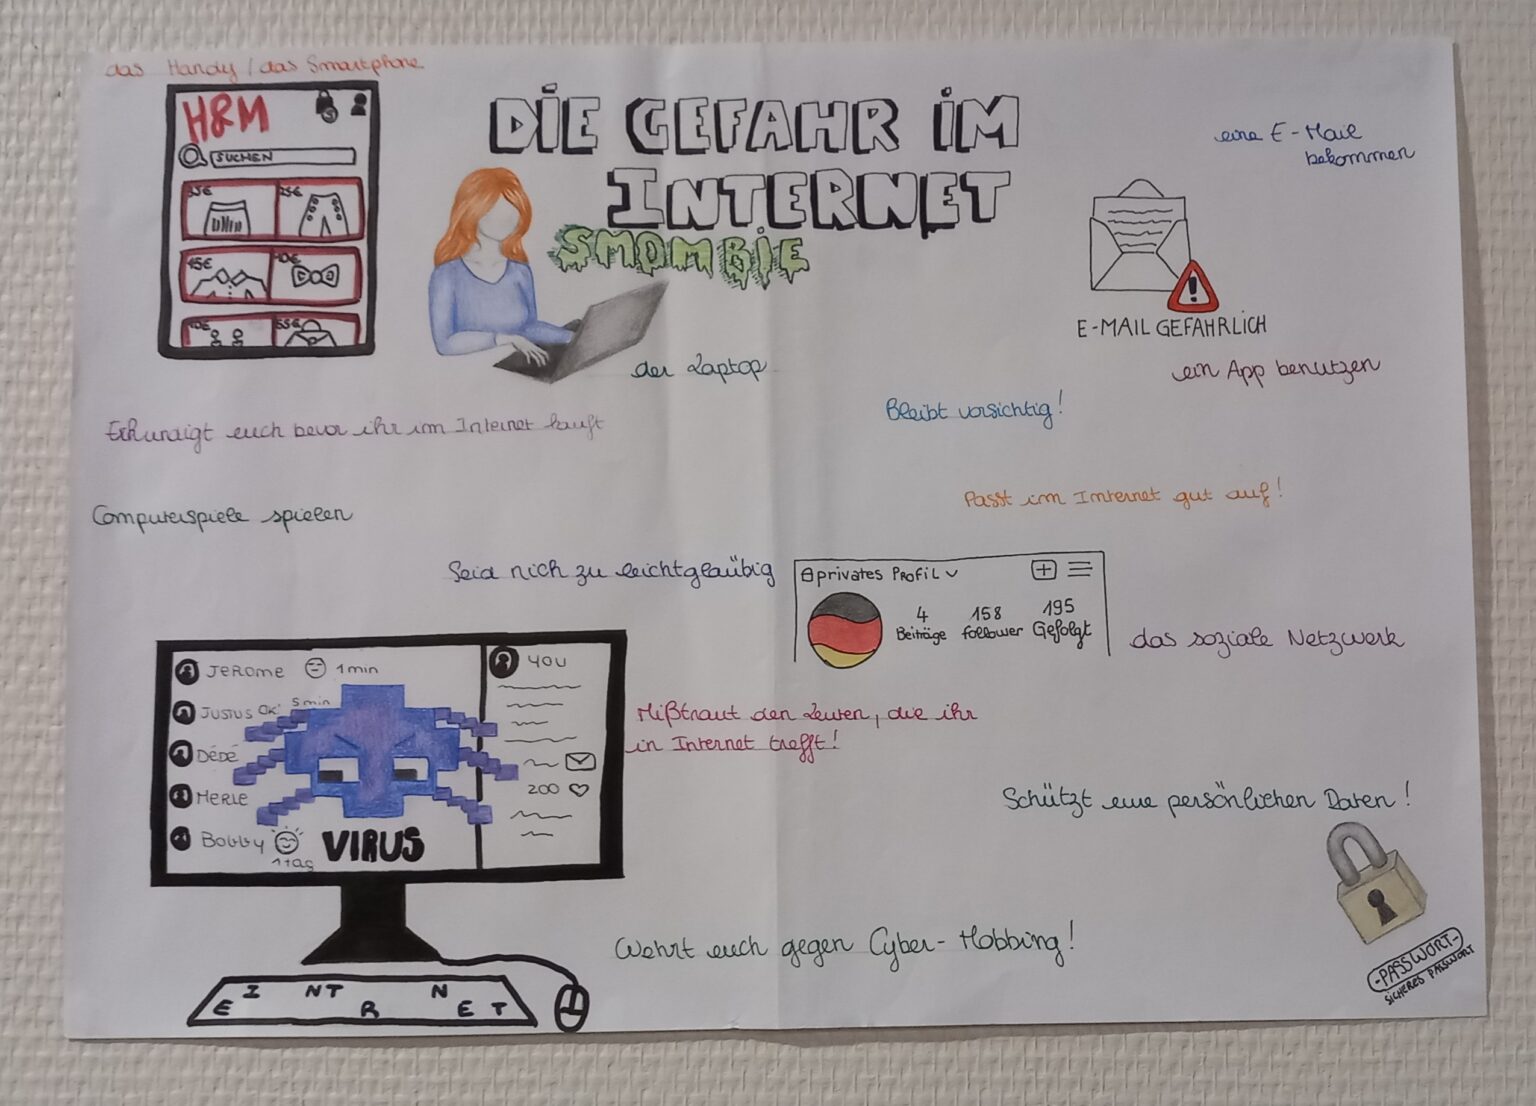 das Handy / das Smartphone
H&M
3
SUCHEN
35€ 25€
45€ 10€
10€ 55€
DIE GEFAHR IM
INTERNET
SMOMBIE
der Laptop
eine E-Mail
bekommen
!
E-MAIL GEFAHRLICH
ein App benutzen
Erkundigt euch bevor ihr im Internet kauft
Bleibt vorsichtig!
Computerspiele spielen
Passt im Internet gut auf!
Seid nich zu leichtgläubig
privates Profil
4 158 195
Beiträge follower Gefolgt
das soziale Netzwerk
Jerome 1 min
Justus OK! 5 min
Dédé
Merle
Bobby
1 tag
VIRUS
YOU
200
Mißtraut den Leuten, die ihr
in Internet trefft!
Schützt eure persönlichen Daten!
-PASSWORT-
SICHERES PASSWORT
Wehrt euch gegen Cyber-Mobbing!
E I NT R N E T